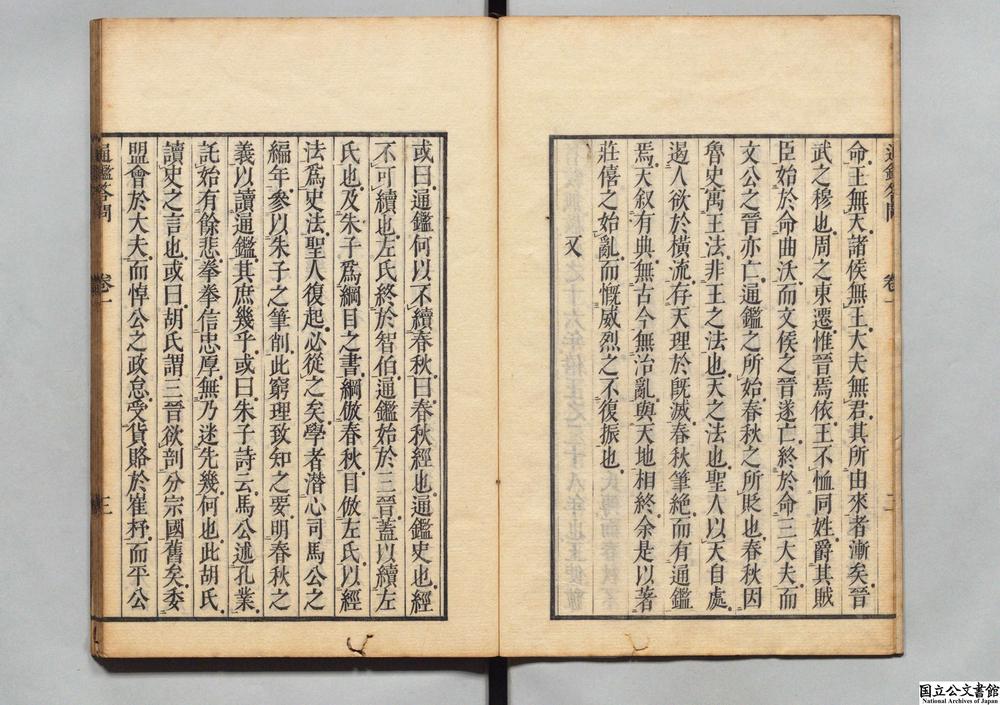 命王無天諸侯無王大夫無君其所由來者漸矣晉
武之穆也周之東遷惟晉焉依王不恤同姓爵其賊
臣始於命曲沃而文侯之晉遂亡終於命三大夫而
文公之晉亦亡通鑑之所始春秋之所貶也春秋因
魯史寓王法非王之法也天之法也聖人以天自處
遏人欲於橫流存天理於既滅春秋筆絶而有通鑑
焉天叙有典無古今無治亂與天地相終余是以著
莊僖之始亂而慨威烈之不復振也
又
或曰通鑑何以不續春秋曰春秋經也通鑑史也經
不可續也左氏終於智伯通鑑始於三晉蓋以續左
氏也及朱子爲綱目之書綱倣春秋目倣左氏以經
法爲史法聖人復起必從之矣學者潛心司馬公之
編年參以朱子之筆削此窮理致知之要明春秋之
義以讀通鑑其庶幾乎或曰朱子詩云馬公述孔業
託始有餘悲拳拳信忠厚無乃迷先幾何也此胡氏
讀史之言也或曰胡氏謂三晉欲剖分宗國舊矣委
盟會於大夫而悼公之政怠受貨賂於崔杼而平公
通鑑答問 卷一 三
通鑑答問 卷一 二
国立公文書館
National Archives of Japan